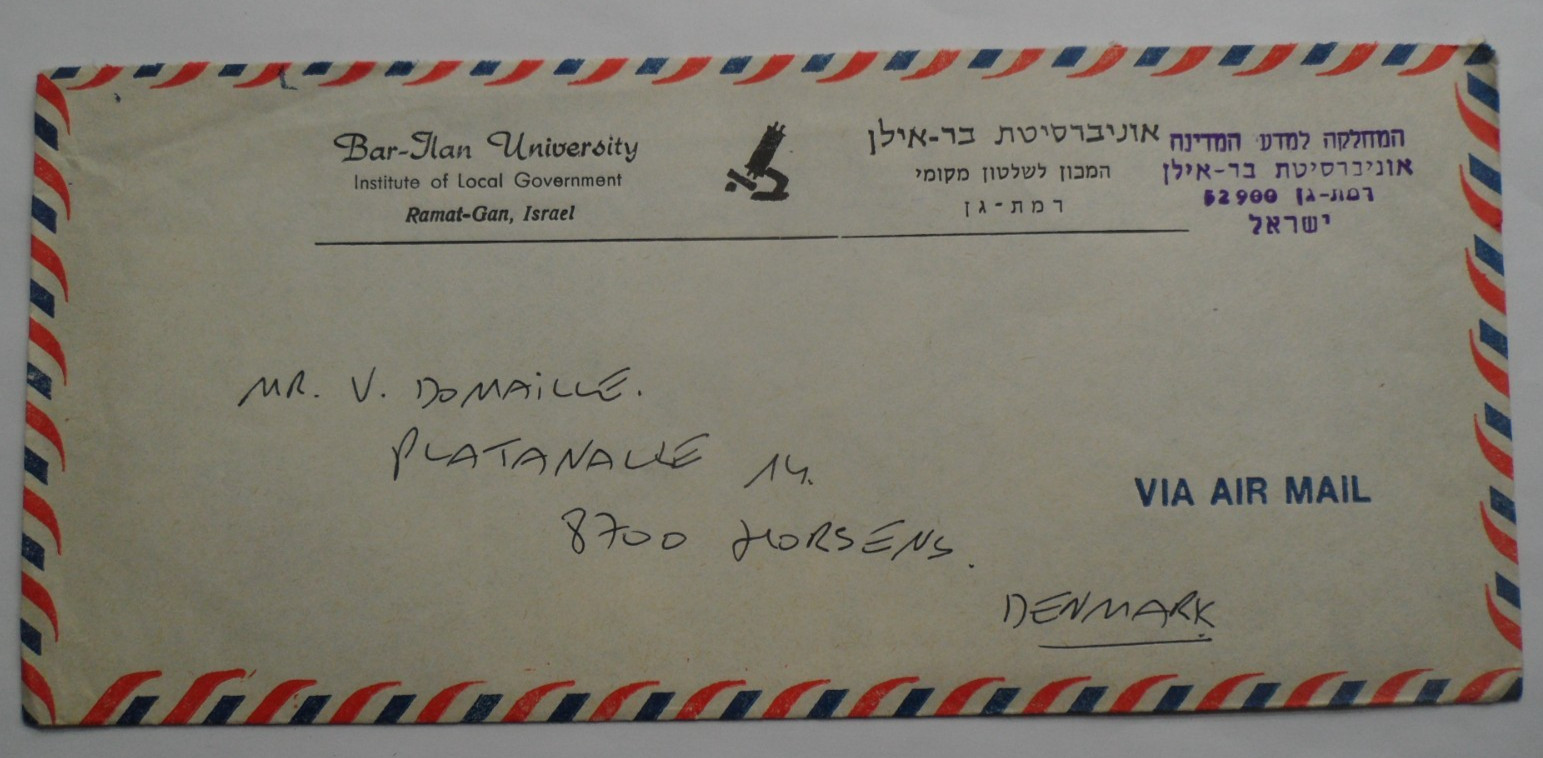 Bar-Ilan University
Institute of Local Government
Ramat-Gan, Israel
אוניברסיטת בר-אילן
המכון לשלטון מקומי
רמת-גן
המחלקה למדע המדינה
אוניברסיטת בר-אילן
רמת-גן 52900
ישראל
MR. V. DOMAILLE.
PLATANALLE 14.
8700 HORSENS.
VIA AIR MAIL
DENMARK